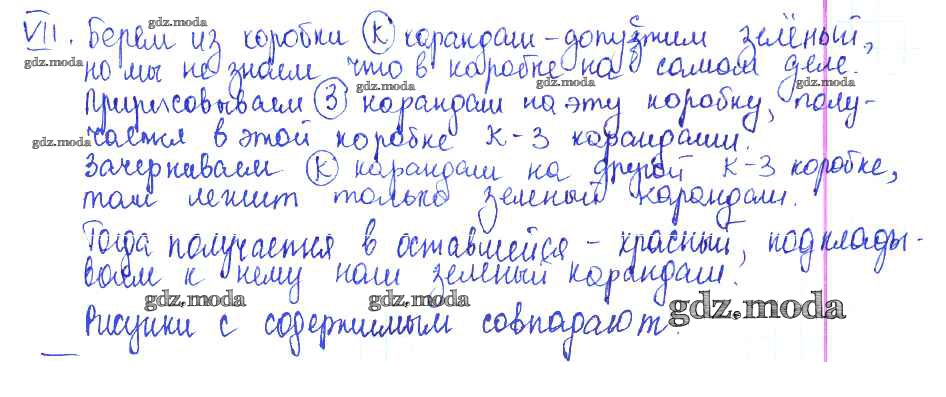 gdz.moda
VII. Берем из коробки К карандаш - допустим зелёный,
gdz.moda gdz.moda
но мы не знаем что в коробке на самом деле.
gdz.moda gdz.moda
Пририсовываем З карандаш на эту коробку, полу-
gdz.moda
чается в этой коробке К-З карандаши.
Зачеркиваем К карандаш на другой К-З коробке,
там лежит только зеленый карандаш.
Тогда получается в оставшейся - красный, подклады-
ваем к нему наш зеленый карандаш.
gdz.moda gdz.moda gdz.moda
Рисунки с содержимым совпадают.